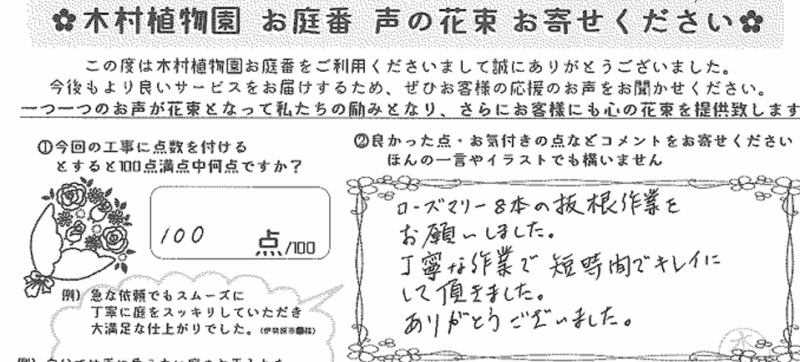 ✿木村植物園 お庭番 声の花束 お寄せください✿
この度は木村植物園お庭番をご利用くださいまして誠にありがとうございました。
今後もより良いサービスをお届けするため、ぜひお客様の応援のお声をお聞かせください。
一つ一つのお声が花束となって私たちの励みとなり、さらにお客様にも心の花束を提供致します
①今回の工事に点数を付ける
とすると100点満点中何点ですか？
100 点/100
例）急な依頼でもスムーズに
丁寧に庭をスッキリしていただき
大満足な仕上がりでした。(伊勢原市
②良かった点・お気付きの点などコメントをお寄せください
ほんの一言やイラストでも構いません
ローズマリー8本の抜根作業を
お願いしました。
丁寧な作業で短時間でキレイに
して頂きました。
ありがとうございました。
木